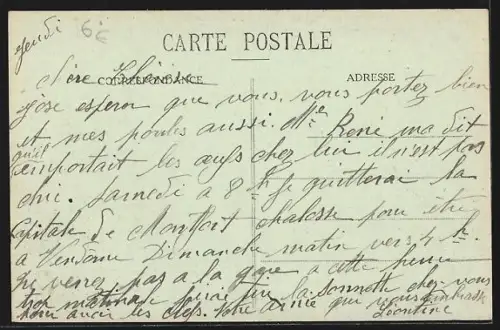 Jeudi
6€
CARTE POSTALE
CORRESPONDANCE
ADRESSE
Chère
j'ose esperer que vous, vous portez bien
et mes poules aussi. Mr René m'a dit
qu'il emportait les œufs chez lui il n'est pas
chic. Samedi a 8 h je quitterai la
Capitale de Montfort chalosse pour être
a Vendôme Dimanche matin vers 4 h.
ne venez pas a la gare a cette heure
trop matinale j'irai tire la sonnette chez vous
pour avoir les clefs. Votre amie que vous embrasse
Léontine